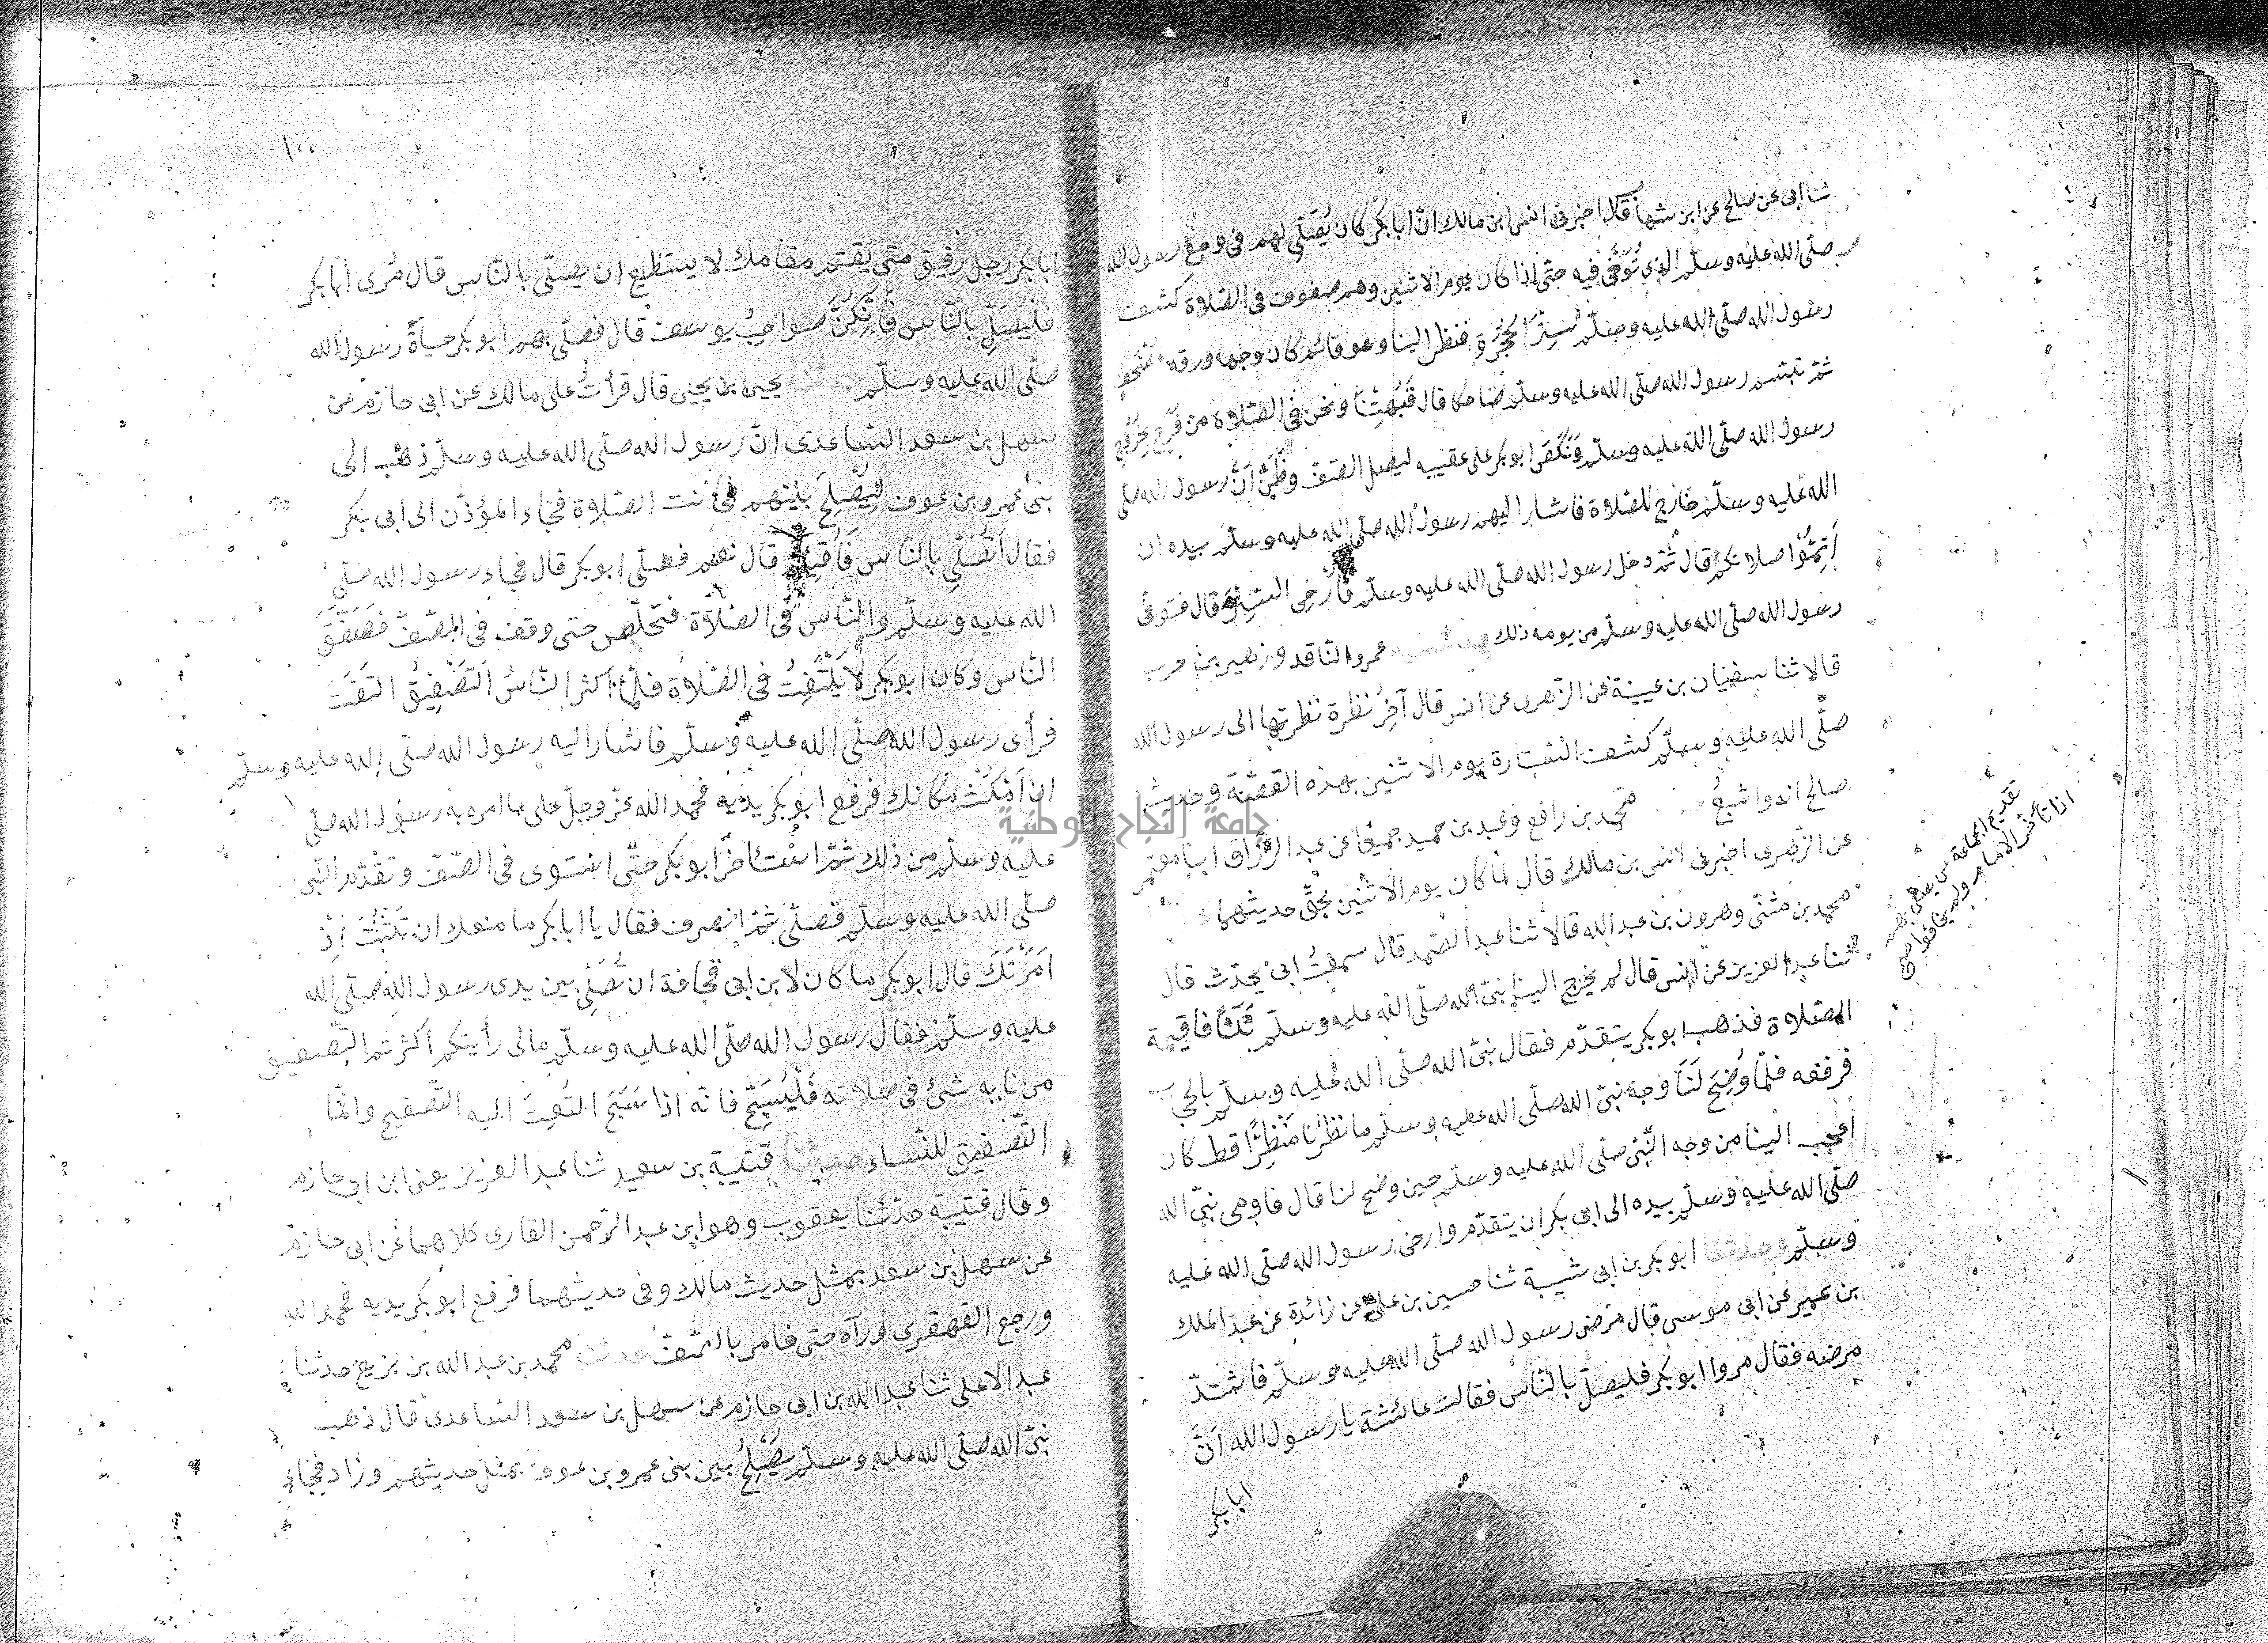 ثنا ابى عن صالح عن ابن شهاب قال اخبرنى انس ابن مالك انّ ابا بكر كان يُصَلّى لهم فى وجع رسول الله
صلّى الله عليه وسلّم الذى تُوُفّى فيه حتّى اذا كان يوم الاثنين وهم صفوف فى الصّلاة كشف
رسول الله صلّى الله عليه وسلّم سِتْرَ الحُجْرَةِ فنظر الينا وهو قائم كان وجهه ورقه مُصْحَفٍ
ثمّ تبسّم رسول الله صلّى الله عليه وسلّم ضاحكا قال فَبُهِتْنَا ونحن فى الصّلاة من فَرَحٍ بخُرُوجِ
رسول الله صلّى الله عليه وسلّم وَنَكَصَ ابو بكر على عقبيه ليصل الصّفّ وظَنَّ اَنَّ رسول الله صلّى
الله عليه وسلّم خارج للصّلاة فاشار اليهم رسول الله صلّى الله عليه وسلّم بيده ان
اَتِمُّوْا صلاتكم قال ثمّ دخل رسول الله صلّى الله عليه وسلّم فأَرْخى السّتر قال فتوفّى
رسول الله صلّى الله عليه وسلّم من يومه ذلك عمرو النّاقد وزهير بن حرب
قالا ثنا سفيان بن عيينة عن الزّهرى عن انس قال آخِرُ نظرة نظرتها الى رسول الله
صلّى الله عليه وسلّم كشف السّتارة يوم الاثنين بهذه القصّة وحديث
صالح اتمّ واشبعُ محمد بن رافع وعبد بن حميد جميعًا عن عبد الرّزّاق ابنا معمر
عن الزّهرى اخبرنى انس بن مالك قال لمّا كان يوم الاثنين بنحو حديثهما
محمد بن مثنّى وهرون بن عبد الله قالا ثنا عبد الصّمد قال سمعتُ ابى يحدّث قال
ثنا عبد العزيز عن انس قال لم يخرج الينا نبىّ الله صلّى الله عليه وسلّم ثَلٰثًا فاقيمة
الصّلاة فذهب ابو بكر يتقدّم فقال نبىّ الله صلّى الله عليه وسلّم بالحجاب
فرفعه فلمّا وُضِحَ لَنَا وجهُ نبىّ الله صلّى الله عليه وسلّم ما نظرْنا مَنْظِرًا قط كان
اعجب الينا من وجه النّبىّ صلّى الله عليه وسلّم حين وضح لنا قال فاومى نبىّ الله
صلّى الله عليه وسلّم بيده الى ابى بكر ان يتقدّم وارخى رسول الله صلّى الله عليه
وسلّم وحدثنا ابو بكر بن ابى شيبة ثنا حسين بن علىّ عن زائدة عن عبد الملك
بن عمير عن ابى موسى قال مَرِضَ رسول الله صلّى الله عليه وسلّم فاشتدّ
مرضه فقال مروا ابو بكر فليصلّ بالنّاس فقالت عائشة يا رسول الله اَنّ
ابا بكر
تقديم الجماعة من يصلى بهم
اذا تأخّر الامام ولم يخافوا
١٠٠
ابا بكر رجل رفيق متى يقتم مقامك لا يستطيع ان يصلّى بالنّاس قال مُرى ابا بكر
فَلْيُصَلِّ بالنّاس فَاِنَّكُنَّ صواحبُ يوسف قال فصلّى بهم ابو بكر حياةَ رسول الله
صلّى الله عليه وسلّم حدثنا يحيى بن يحيى قال قرأتُ على مالك عن ابى حازم عن
سهل بن سعد السّاعدى انّ رسول الله صلّى الله عليه وسلّم ذهب الى
بنى عمرو بن عوف لِيُصْلِحَ بينهم فحانت الصّلاة فجاء المؤذّن الى ابى بكر
فقال اَتُصَلّى بالنّاس فَأُقِيْمُ قال نعم فصلّى ابو بكر قال فجاء رسول الله صلّى
الله عليه وسلّم والنّاس فى الصّلاة فتخلّص حتى وقف فى الصّفّ فَصَفَّقَ
النّاس وكان ابو بكر لا يَلْتَفِتُ فى الصّلاة فلمّا اكثر النّاسُ اَلتّصْفِيْقَ التَفَتَ
فرأى رسول الله صلّى الله عليه وسلّم فاشار اليه رسول الله صلّى الله عليه وسلّم
ان اُمْكُثْ مكانك فرفع ابو بكر يديه فحمد الله عزّ وجلّ على ما امره به رسول الله صلّى
عليه وسلّم من ذلك ثمّ استأخر ابو بكر حتّى استوى فى الصّفّ وتقدّم النّبى
صلّى الله عليه وسلّم فصلّى ثمّ انصرف فقال يا ابا بكر ما منعك ان تَثْبُتَ اِذْ
اَمَرْتَكَ قال ابو بكر ما كان لابن ابى قحافة ان يُصَلّى بين يدى رسول الله صلّى الله
عليه وسلّم فقال رسول الله صلّى الله عليه وسلّم مالى رأيتكم اكثرتم التّصفيق
من نابه شئ فى صلاته فَلْيُسَبِّحْ فانّه اذا سَبّحَ التُفِتَ اليه التّصفيح وانّما
التّصْفيق للنّساء حدثنا قتيبة بن سعيد ثنا عبد العزيز يعنى ابن ابى حازم
وقال قتيبة حدّثنا يعقوب وهو ابن عبد الرّحمن القارى كلاهما عن ابى حازم
عن سهل بن سعد بمثل حديث مالك وفى حديثهما فرفع ابو بكر يديه فحمد الله
ورجع القهقرى ورآه حتى قام بالصّفّ حدثنا محمد بن عبد الله بن بزيع حدثنا
عبد الاعلى ثنا عبد الله بن ابى حازم عن سهل بن سعد السّاعدى قال ذهب
نبىّ الله صلّى الله عليه وسلّم يُصْلِحُ بين بنى عمرو بن عوف بمثل حديثهم وزاد فجاء
جامعة النجاح الوطنية